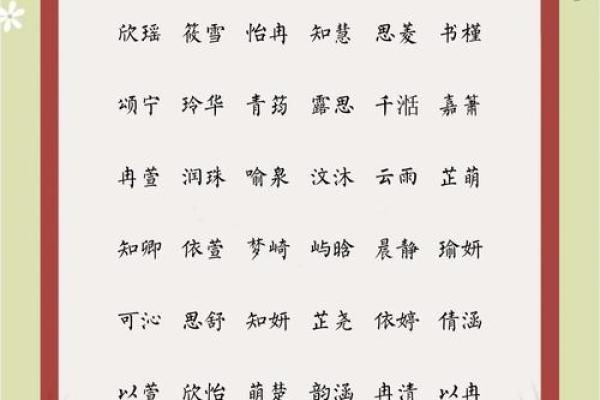 欣瑶 筱雪 怡冉 知慧 思菱 书槿
颂宁 玲华 青筠 露思 千湉 嘉箫
冉萱 润珠 喻泉 汶沐 云雨 芷萌
知卿 依萱 梦崎 屿晗 晨静 瑜妍
可沁 思舒 知妍 芷尧 依婷 倩涵
以萱 欣怡 萌楚 韵涵 冉清 以冉